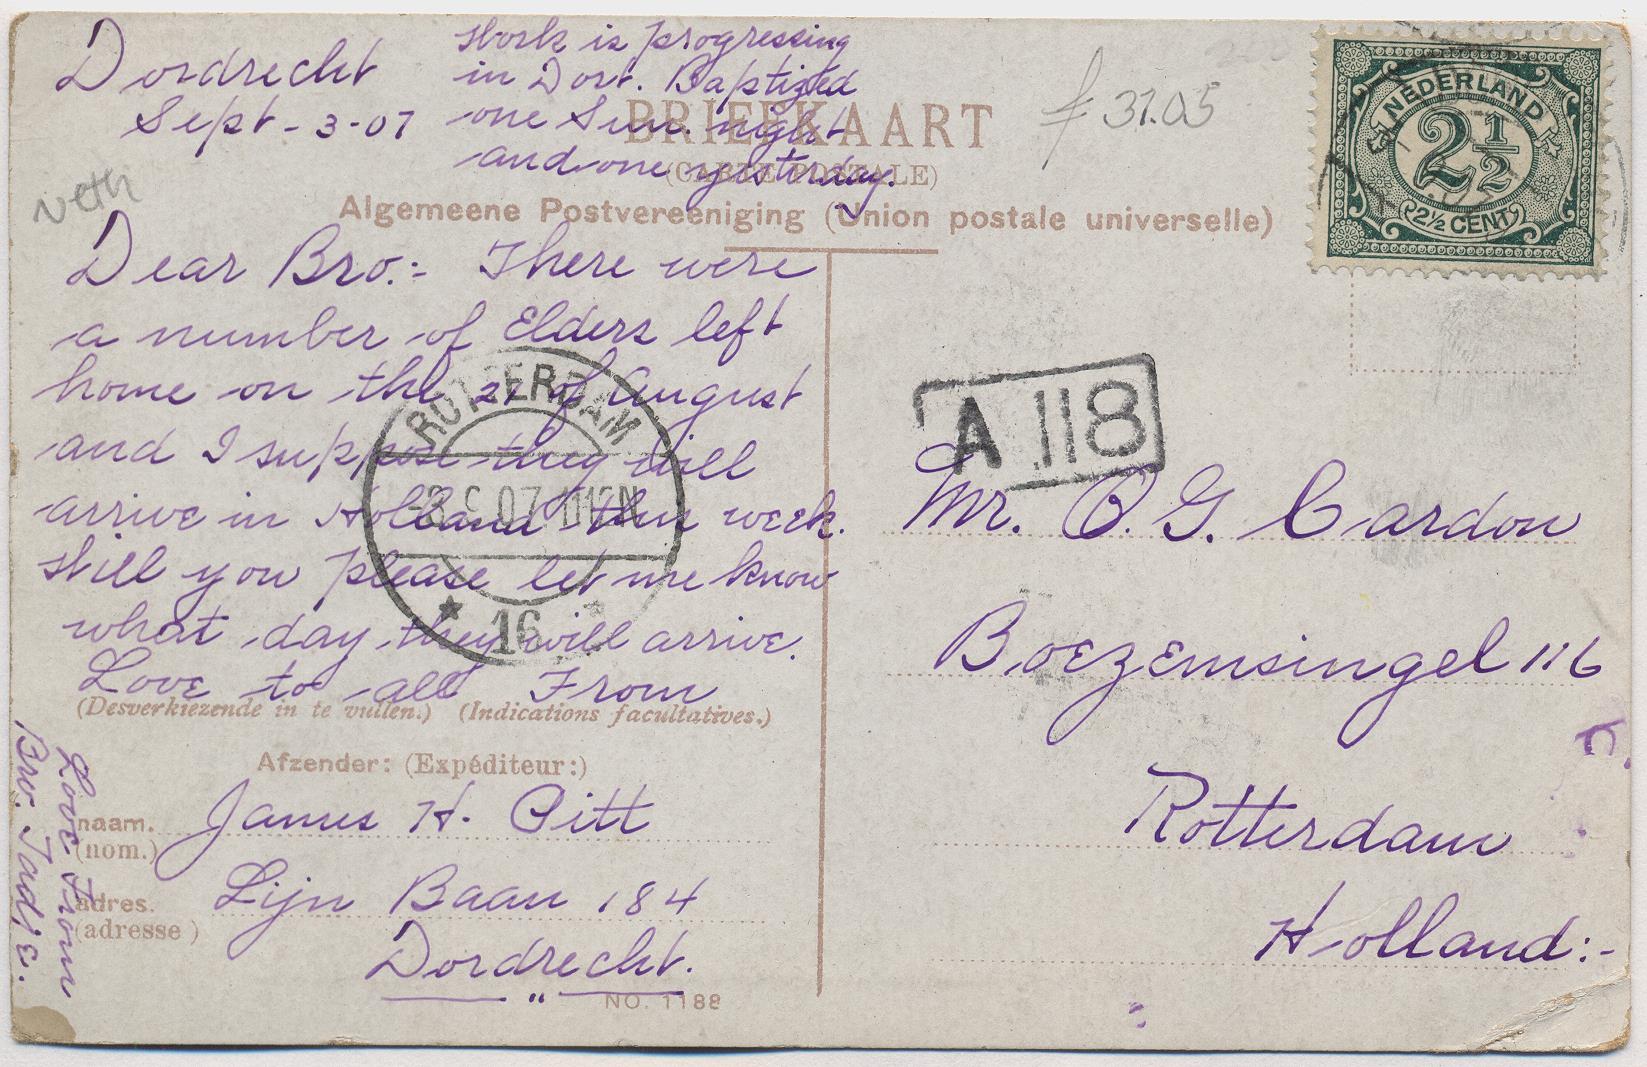 Dordrecht
Sept - 3 - 07
Work is progressing
in Dort. Baptized
one Sun. night
and one yesterday.
BRIEFKAART
(CARTE POSTALE)
Algemeene Postvereeniging (Union postale universelle)
f 31.05
Neth
NEDERLAND
2½
2½ CENT
Dear Bro:- There were
a number of Elders left
home on the 21 of August
and I suppose they will
arrive in Holland this week.
Will you please let me know
what day they will arrive.
Love to all From
(Desverkiezende in te vullen.) (Indications facultatives.)
Afzender: (Expéditeur:)
naam. James H. Pitt
(nom.)
adres. Lijn Baan 184
(adresse)
Dordrecht.
NO. 1188
Love From
Bro. Jadje.
ROTTERDAM
16
A 118
Mr. O. G. Cardon
Boezemsingel 116
Rotterdam
Holland:-